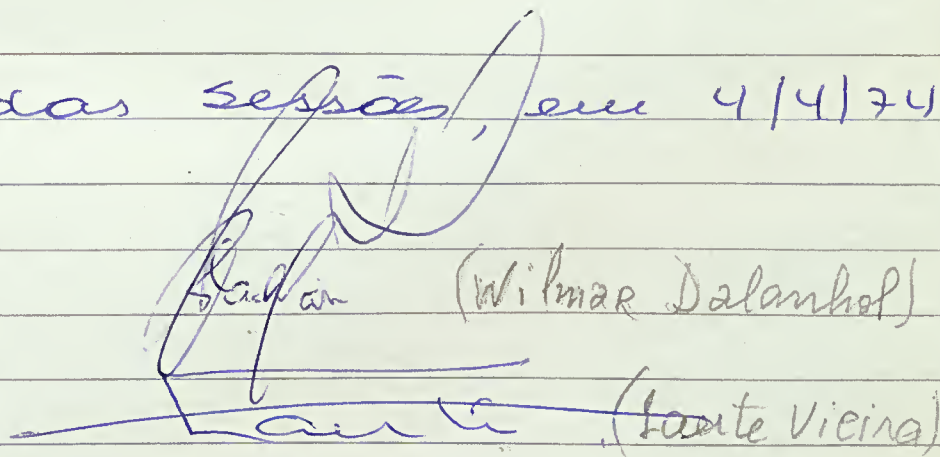 das sessões, em 4/4/74
(Wilmar Dalanhol)
(Laerte Vieira)